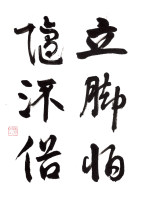 立脚怕
随流俗